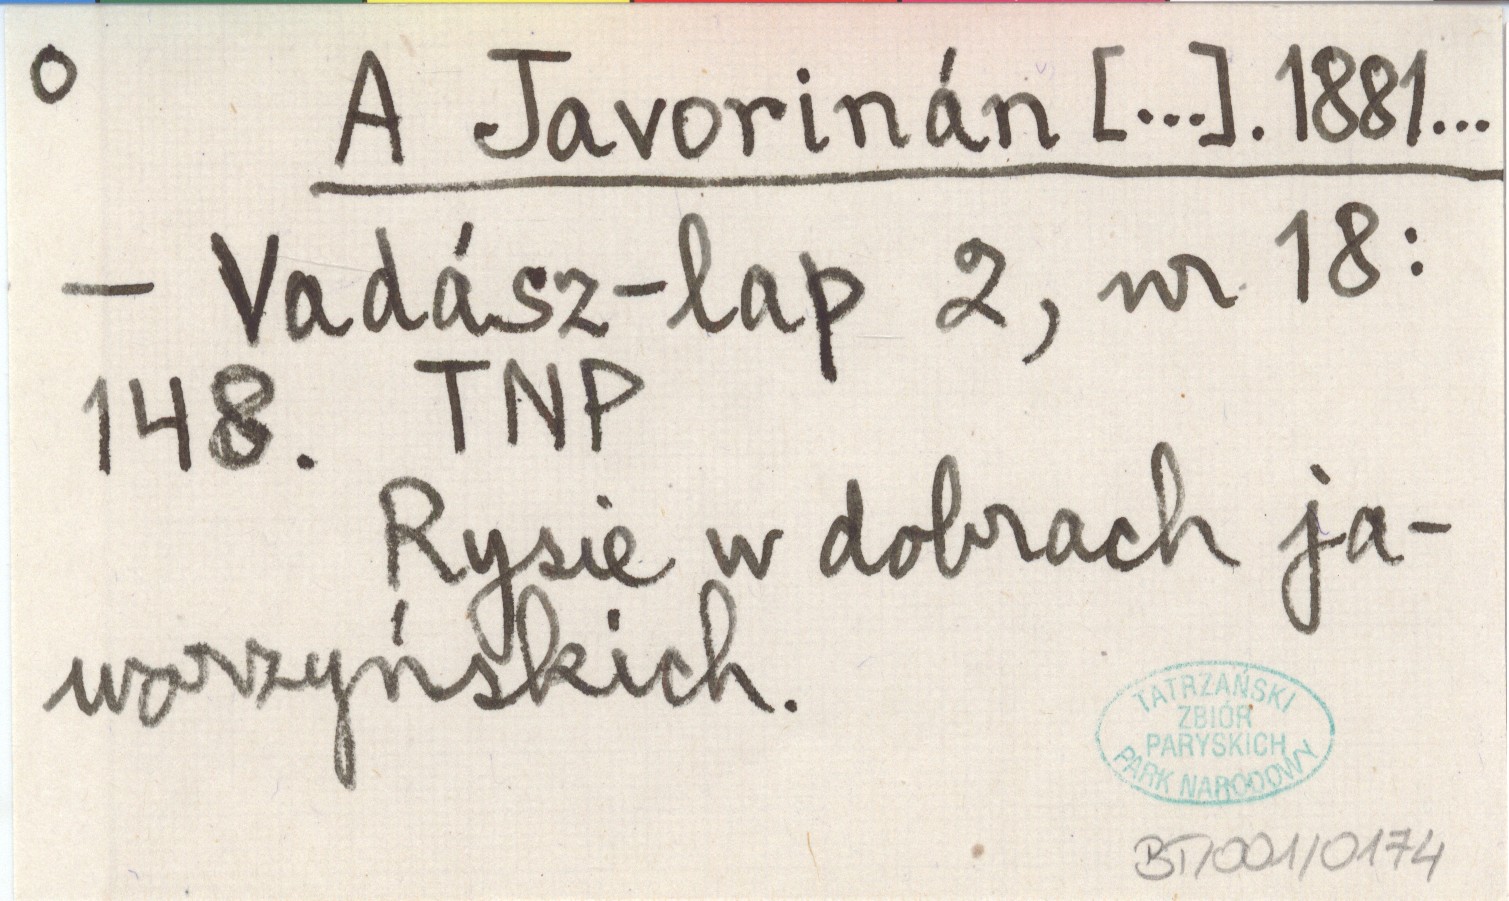 o A Javorinán [...]. 1881...
— Vadász-lap 2, nr 18:
148. TNP
Rysie w dobrach ja-
worzyńskich.
TATRZAŃSKI
ZBIÓR
PARYSKICH
PARK NARODOWY
BT/001/0174